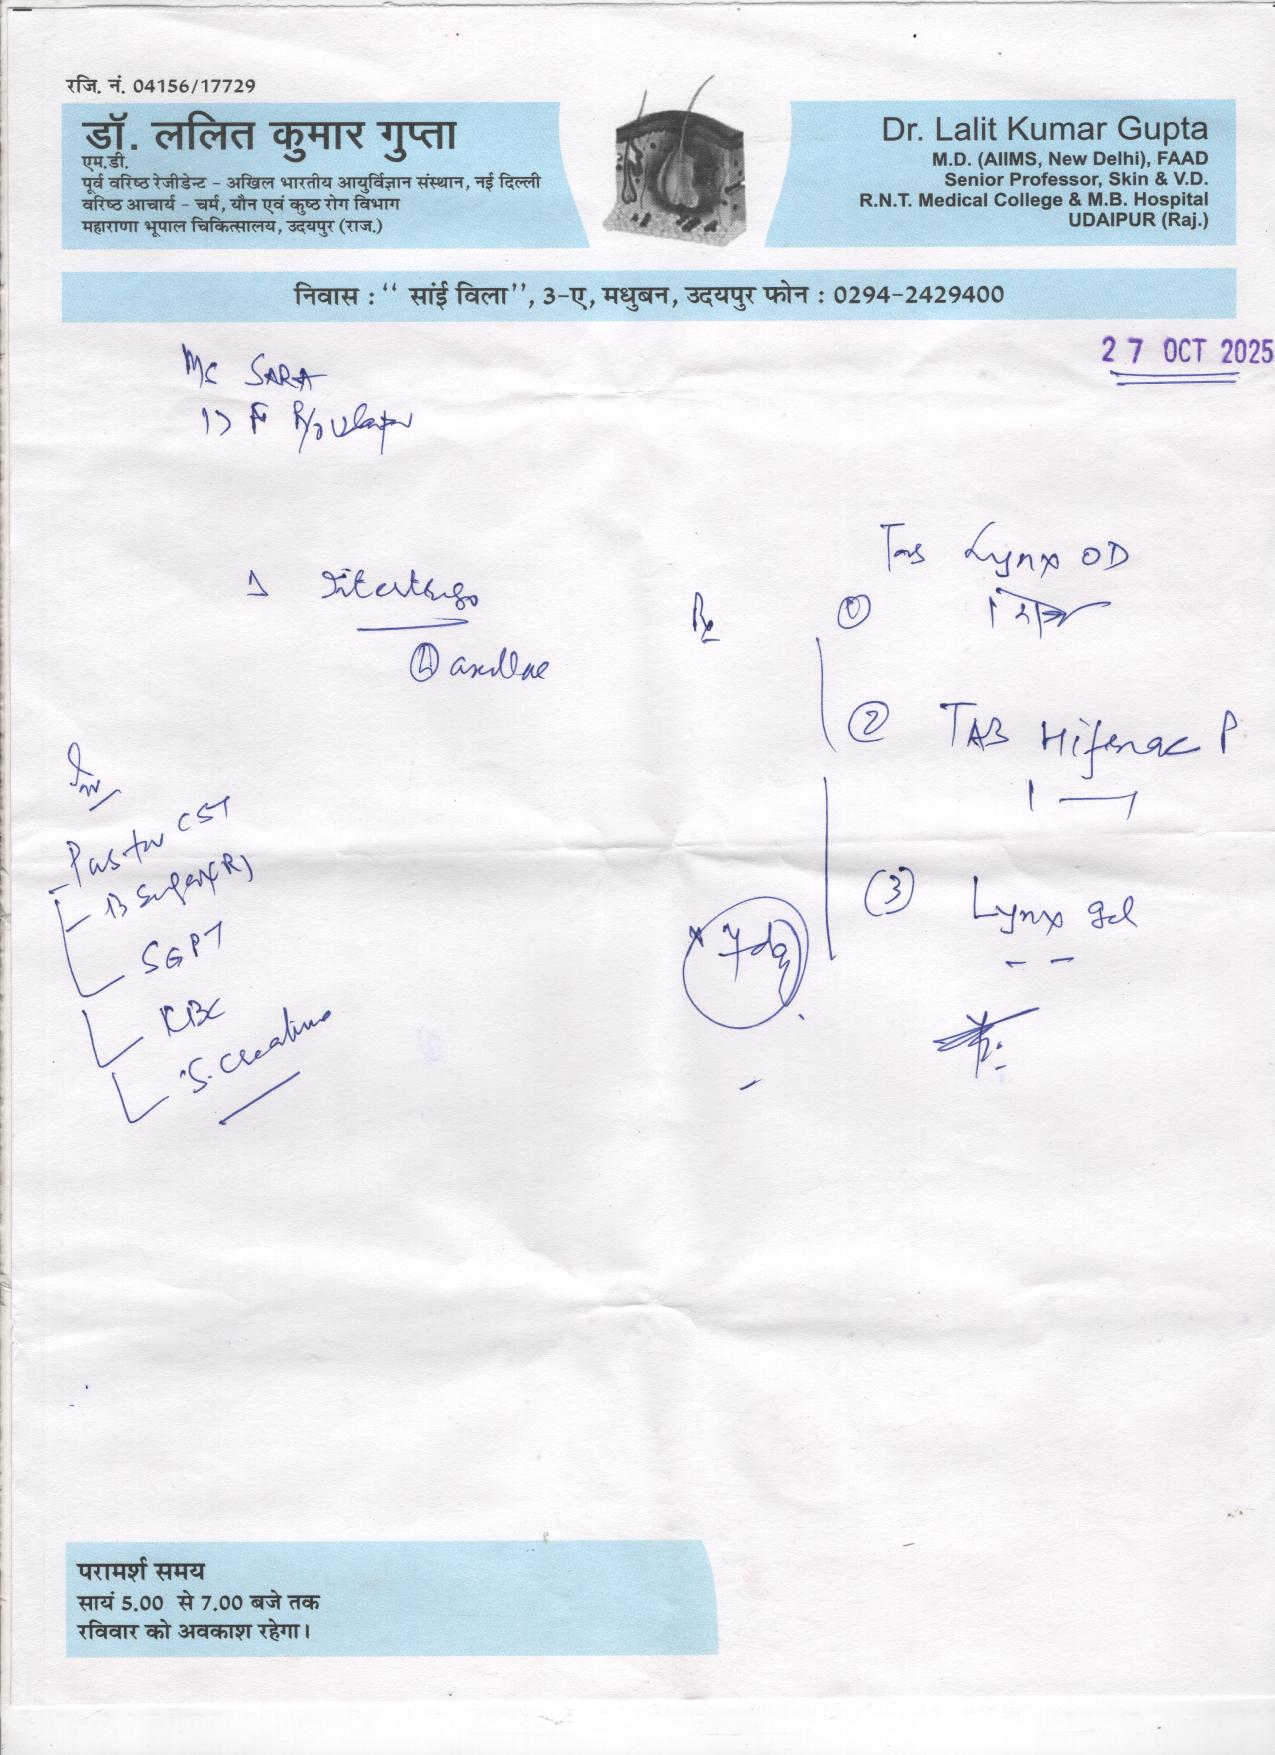 रजि. नं. 04156/17729
डॉ. ललित कुमार गुप्ता
एम.डी.
पूर्व वरिष्ठ रेजीडेन्ट - अखिल भारतीय आयुर्विज्ञान संस्थान, नई दिल्ली
वरिष्ठ आचार्य - चर्म, यौन एवं कुष्ठ रोग विभाग
महाराणा भूपाल चिकित्सालय, उदयपुर (राज.)
Dr. Lalit Kumar Gupta
M.D. (AIIMS, New Delhi), FAAD
Senior Professor, Skin & V.D.
R.N.T. Medical College & M.B. Hospital
UDAIPUR (Raj.)
निवास : “ सांई विला”, 3-ए, मधुबन, उदयपुर फोन : 0294-2429400
27 OCT 2025
SARA
F R/o
Intertrigo
axillae
Rx
Tab Lynx OD
①
② TAB Hifenac P
1
(3) Lynx gel
Inv
Pus for CST
B Sugar (R)
SGPT
CBC
S. Creatinine
परामर्श समय
सायं 5.00 से 7.00 बजे तक
रविवार को अवकाश रहेगा।